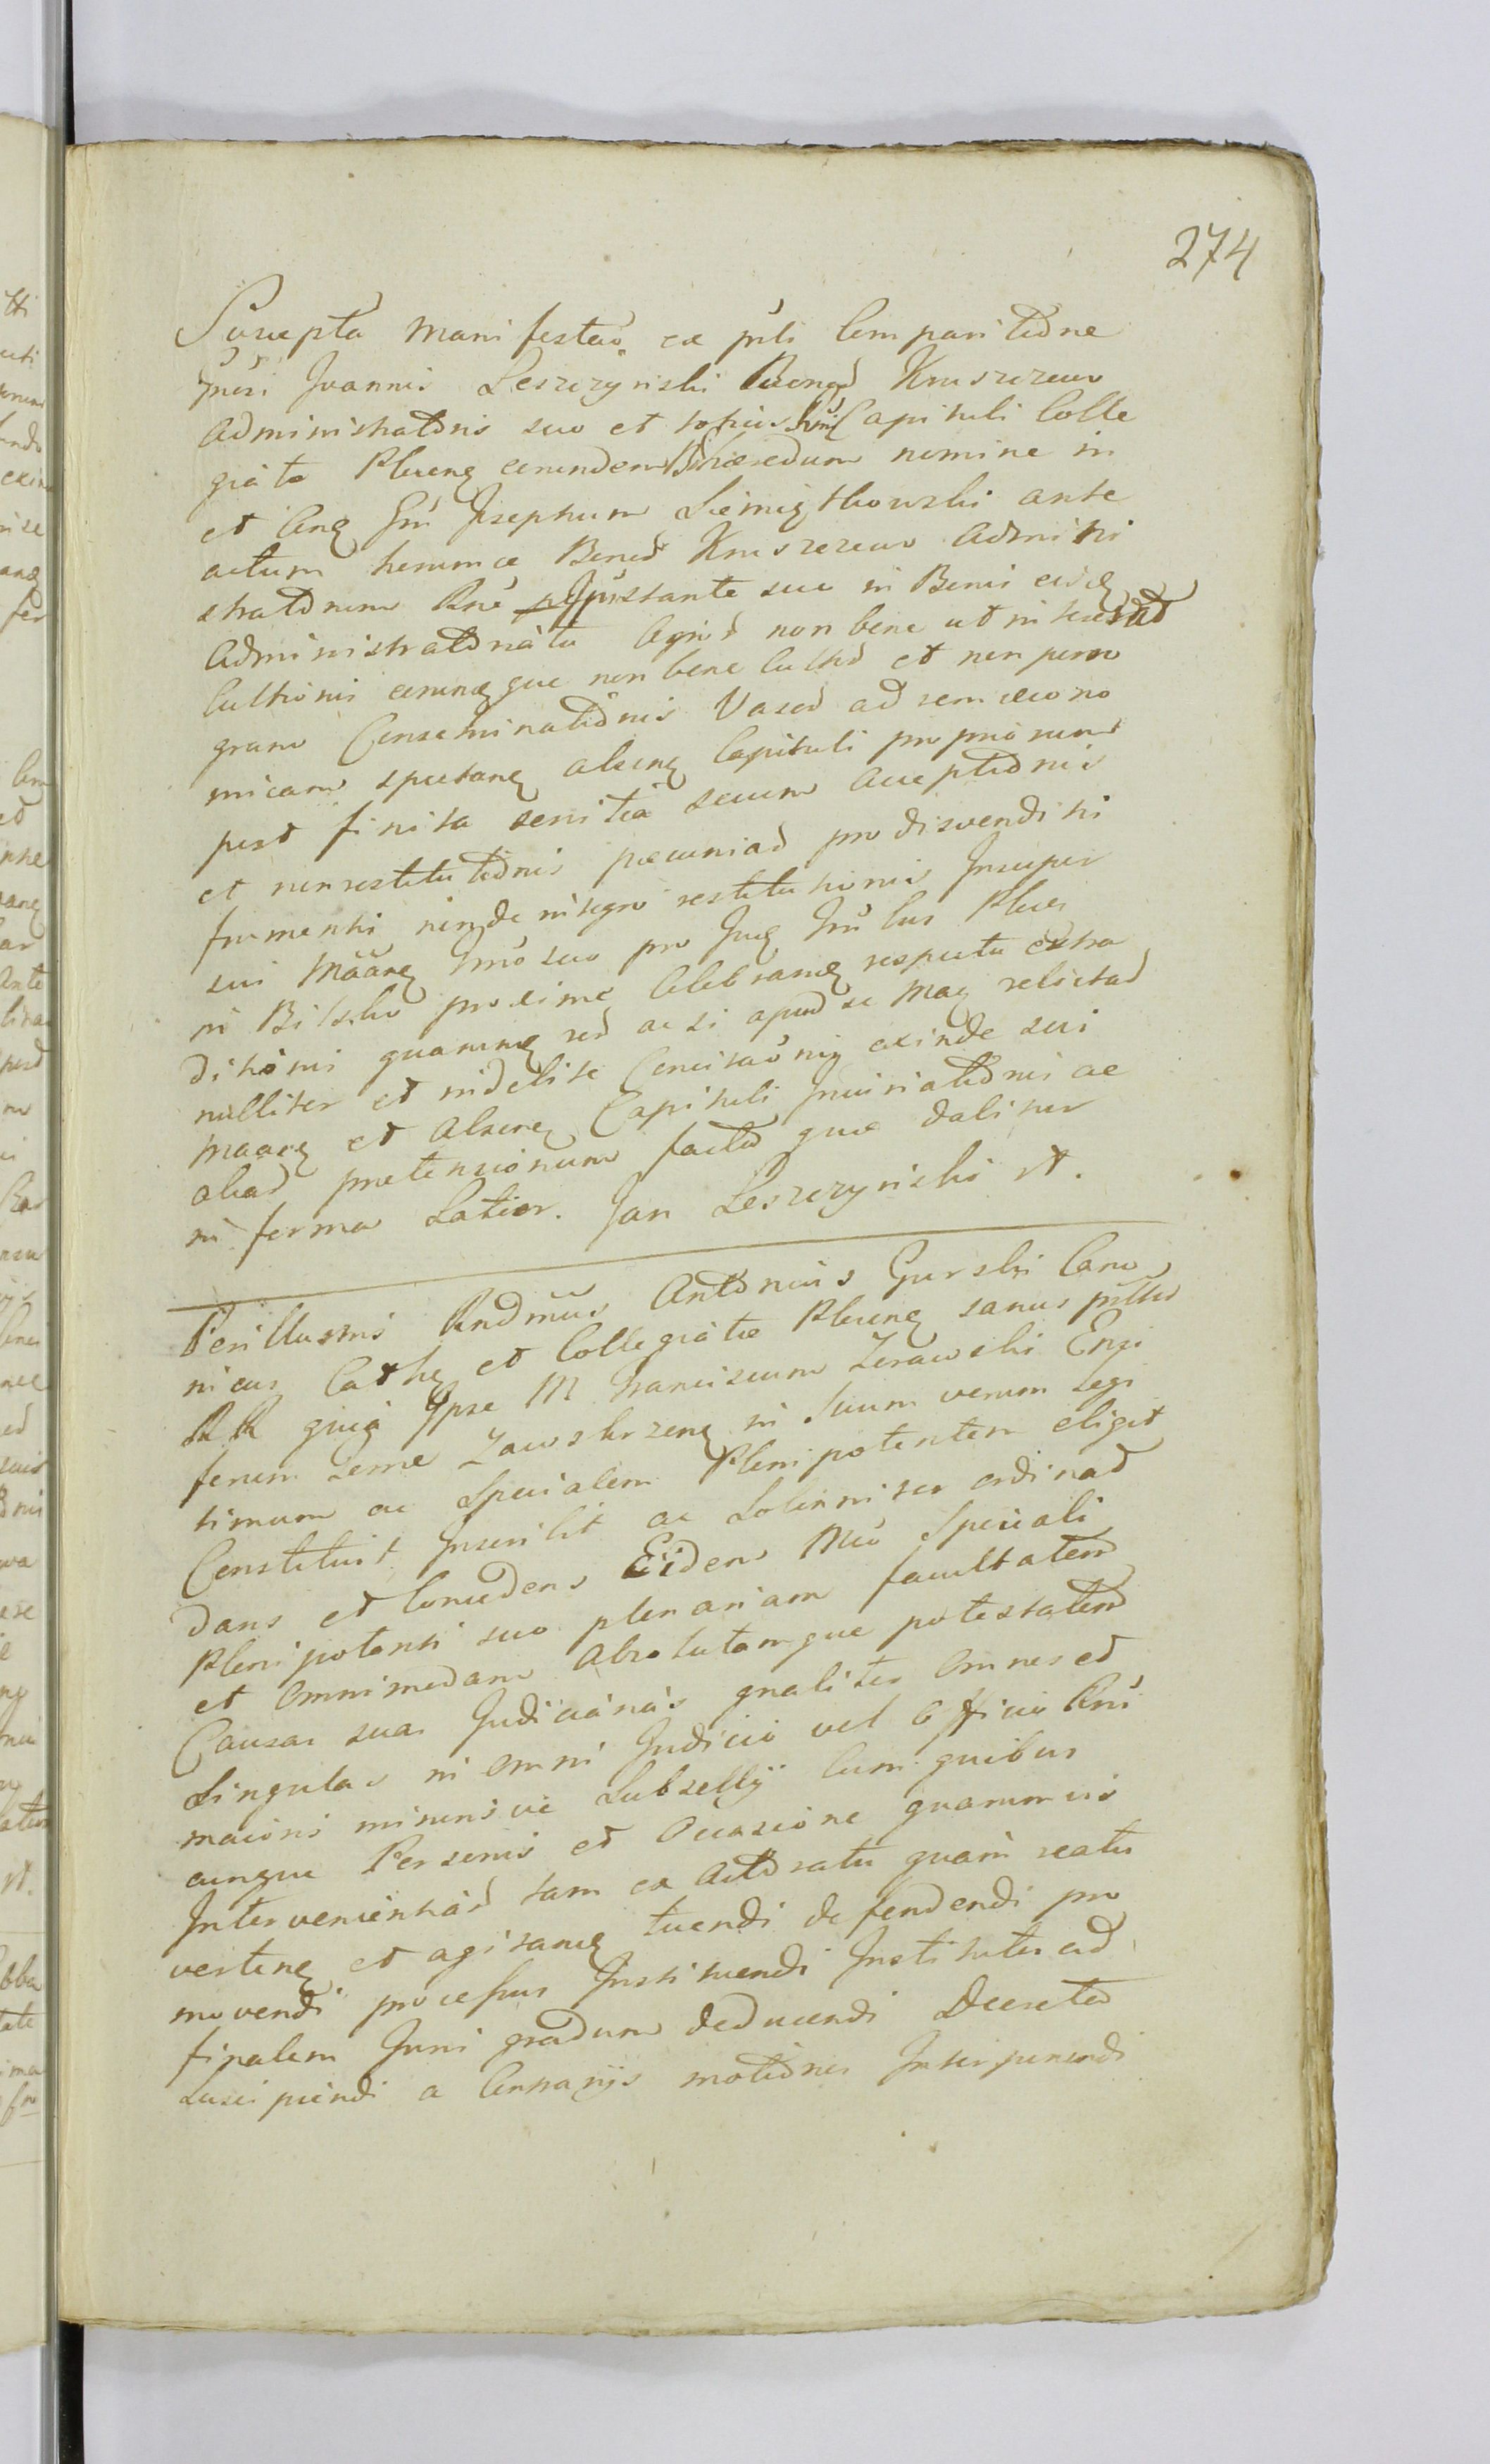 274
Suscepta Manifestao. ex pnti Comparitione
Gnosi Joannis Leszczynski Bonor Kruszczewo
Administratoris suo et totius Capituli Colle
giatæ Plocen eorundem hæredum nomine in
et Cong Gm Josephum Siemiątkowski ante
actum horumce Bonor Kruszczewo Admini
stratorem Rne Instante suo in Bonis eisdq
Administratoriatu Agror non bene ut interest
Cultionis eorumqque non bene Cultor et non pono
grano Conseminationis Vasor ad rem æcono
micam spectanq alsenq Capituli propriorum
post finita servitia secum acceptionis
et nonrestitutionis pæcuniar pro disvenditi
frumenti non de integro restitutionis Insuper
sui Maarq Imo suo pro Jnq Jnibus Plocen
in Bilsko proxime Celebranq respectu extra
ditionis quarumq red ac si apud se Mag relictar
nulliter et indebite Concitaonis exinde sui
Maarq et alsenq Capituli Injuriationis ac
aliar pretensionum factor quæ dabitur
in forma Latior. Jan Leszczynski st.
Perillustris Rndmus Antonius Gurski Cano
nicus Cathq et Collegiatæ Plocenq sanus pntbs
RR quia Ipse M Franciscum Zerawski Ensi
ferum Terræ Zawskrzenq in Suum verum legi
timum ac Specialem Plenipotentem eligit
Constituit Inscribit ac Solenniter ordinat
dans et Concedens Eidem Mco Speciali
Plenipotenti suo plenariam facultatem
et omnimodam absolutamque potestatem
Causas suas Judiciarias gnaliter omnes et
Singulas in omni Judicio vel officio Rni
maioris minorisve Subsellij Cum quibus
cunque Personis et occasione quarumvis
Intervenientiar tam ex actoratu quam reatu
vertenq et agitanq tuendi defendendi pro
movendi processus Instituendi Institutos ad
finalem Juris gradum deducendi Decreta
Suscipiendi a Contrarijs motiones Interponendi